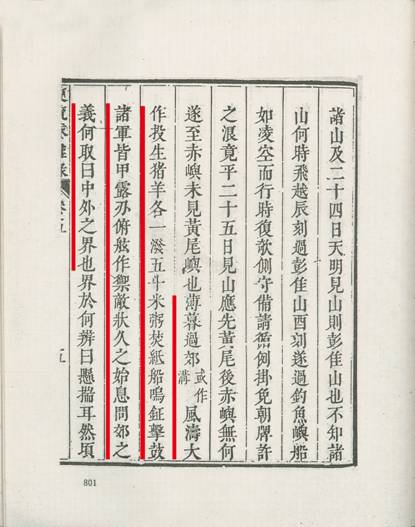 諸山及二十四日天明見山則彭佳山也不知諸
山何時飛越辰刻過彭佳山酉刻遂過釣魚嶼船
如凌空而行時復欹側守備請循例掛免朝牌許
之浪竟平二十五日見山應先黃尾後赤嶼無何
遂至赤嶼未見黃尾嶼也薄暮過郊或作溝風濤大
作投生猪羊各一潑五斗米粥焚紙船鳴鉦擊鼓
諸軍皆甲露刃俯舷作禦敵狀久之始息問郊之
義何取曰中外之界也界於何辨曰懸揣耳然頃
五
801